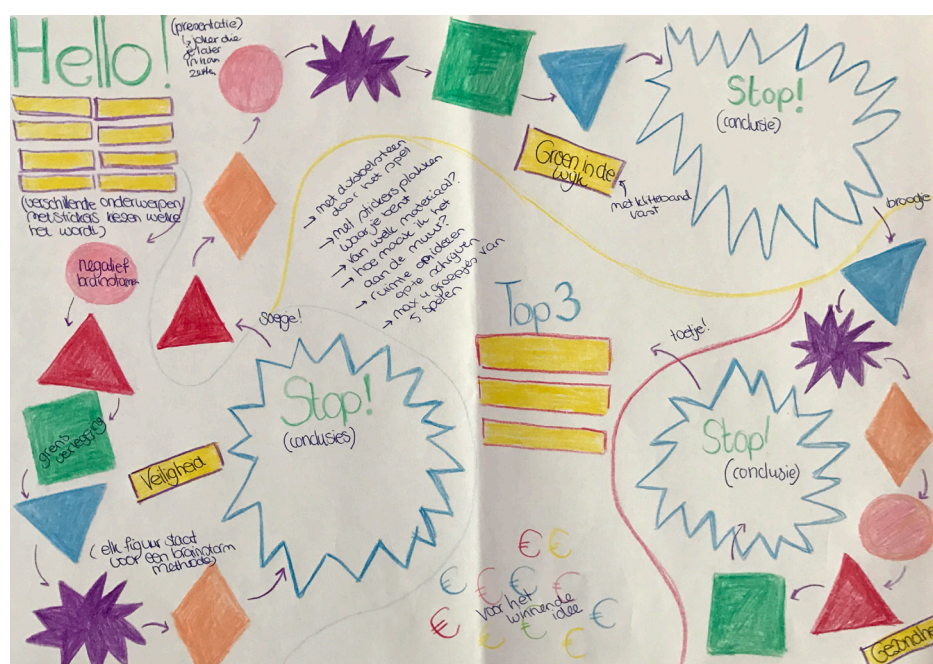 Hello!
(presentatie)
↳ joker die
je later
in kan
zetten
(verschillende onderwerpen)
met stickers kiezen welke
het wordt)
negatief
brainstormen
grens
verleggend
Veiligheid
(elk figuur staat
voor een brainstorm
methode)
soepje!
Stop!
(conclusies)
→ met dobbelsteen
door het spel
→ met stickers plakken
waar je bent
→ van welk materiaal?
→ hoe maak ik het
aan de muur?
→ ruimte om ideeen
op te schrijven
→ max 4 groepjes van
5 spelen
Groen in de
wijk
met klitteband
vast
Stop!
(conclusie)
broodje
Top 3
toetje!
Stop!
(conclusie)
€ €
€ € € €
voor het
winnende
idee
€ €
€ € €